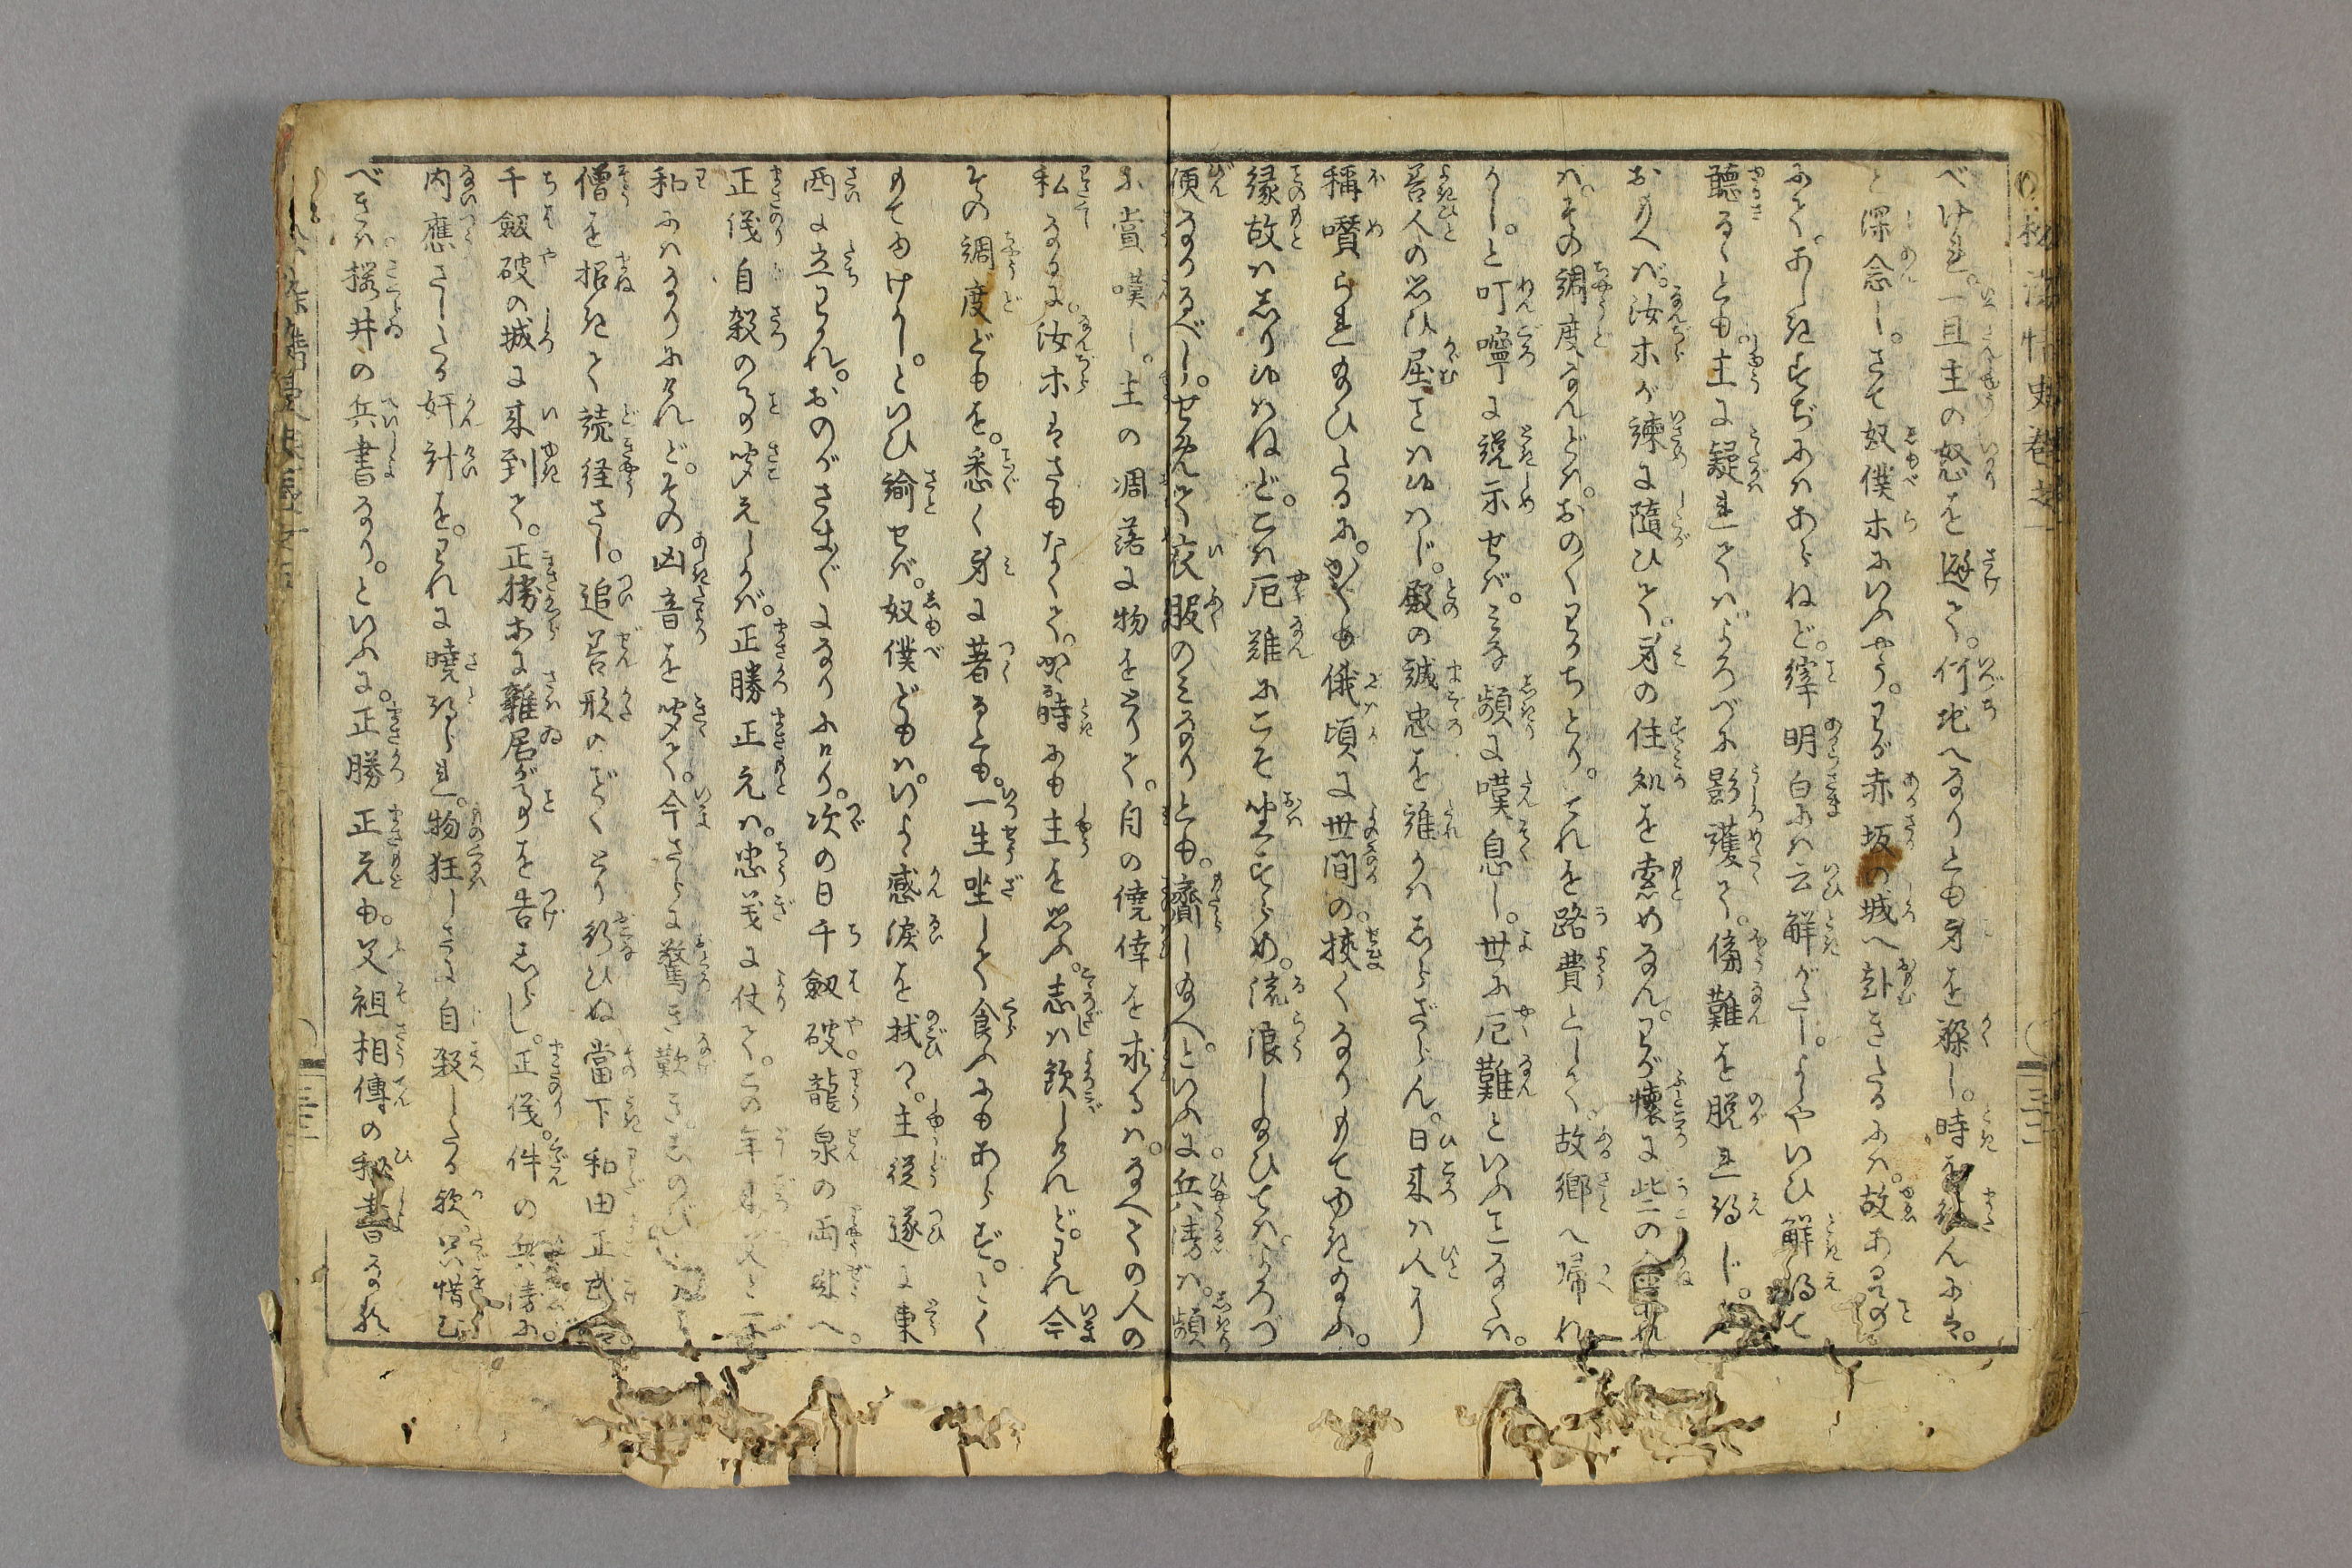 べけれ。一旦主の怒を避て。何地へなりとも身を躱し。時を
と深念し。さて奴僕ホにいふやう。わが赤坂の城へ赴きたるには。故ある
にて。あしきすぢにはあらねど。縡明白には云解がたし。よしやいひ解得て
聴るゝとも主に疑れては。よろづに影護て。傷難を脱れ得じ。
おもへば。汝ホが諫に随ひて。身の住処を索めなん。わが懐に此二の
は。その調度なんどは。おの〳〵わかちとり。これを路費として。故郷へ帰れ
かし。と叮嚀に説示せば。みな頻に嘆息し。世に厄難といふことなくは。
善人の思ひ屈ことは候はじ。殿の誠忠を誰かはしらざらん。日来は人より
稱讃られ給ひたるに。かくも俄頃に世間の。挾くなりもてゆき給ふ。
縁故はしり候はねど。こは厄難にこそ坐すらめ。流浪し給ひては。よろづ
便なかるべし。せめて衣服のみなりとも。齎し給へ。といふに兵濤は。頻
に賞嘆し。主の凋落に物をとりて。自の僥倖を求るは。なべての人の
私なるに。汝ホはさもなくて。かゝる時にも主を思ふ。志は歓しけれど。われ今
その調度どもを。悉く身に著るとも。一生坐して食ふにもあらず。とく
もてゆけかし。といひ諭せば。奴僕どもは。いよゝ感涙を拭ひつ。主従遂に東
西に立わかれ。おのがさまざまになりにけり。次の日千劔破。龍泉の両城へ。
正儀自殺の事聞えしかば。正勝正元は。忠義に仗て。この年来父と一
和にはなかりにけれど。その凶音を聞て。今さらに驚き歎き。しのび
僧を招きて読経さし。追善形のごとくとり行ひぬ當下和田正武
千劔破の城に来到て。正勝ホに雜居が事を告しらし。正儀。件の兵濤に。
内應さしたる奸計を。われに曉得られ。物狂しさに自殺したる歟。只惜む
べきは櫻井の兵書なり。といふに。正勝正元も。父祖相傳の秘書なれ